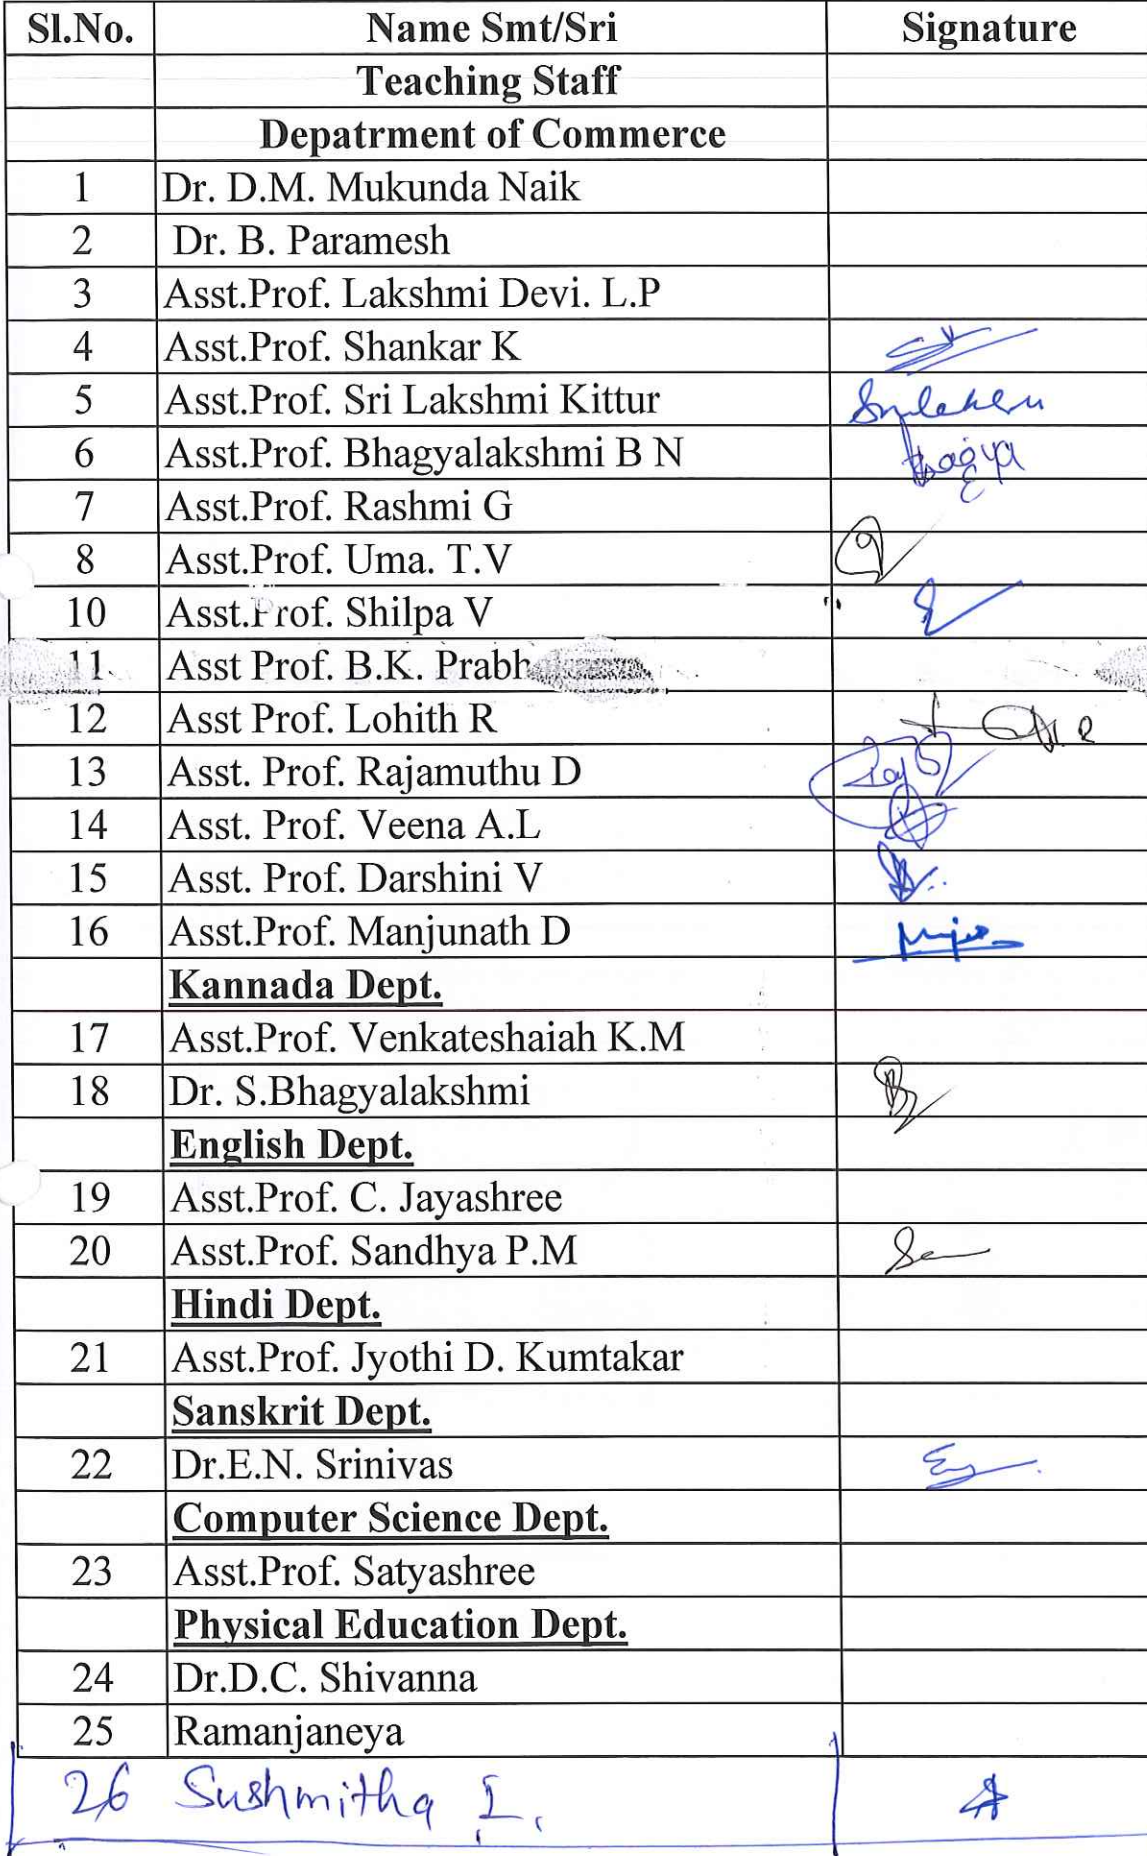 Sl.No. Name Smt/Sri Signature
Teaching Staff
Depatrment of Commerce
1 Dr. D.M. Mukunda Naik
2 Dr. B. Paramesh
3 Asst.Prof. Lakshmi Devi. L.P
4 Asst.Prof. Shankar K
5 Asst.Prof. Sri Lakshmi Kittur
6 Asst.Prof. Bhagyalakshmi B N Bhagya
7 Asst.Prof. Rashmi G
8 Asst.Prof. Uma. T.V
10 Asst.Prof. Shilpa V
11 Asst Prof. B.K.
12 Asst Prof. Lohith R
13 Asst. Prof. Rajamuthu D
14 Asst. Prof. Veena A.L
15 Asst. Prof. Darshini V
16 Asst.Prof. Manjunath D
Kannada Dept.
17 Asst.Prof. Venkateshaiah K.M
18 Dr. S.Bhagyalakshmi
English Dept.
19 Asst.Prof. C. Jayashree
20 Asst.Prof. Sandhya P.M
Hindi Dept.
21 Asst.Prof. Jyothi D. Kumtakar
Sanskrit Dept.
22 Dr.E.N. Srinivas
Computer Science Dept.
23 Asst.Prof. Satyashree
Physical Education Dept.
24 Dr.D.C. Shivanna
25 Ramanjaneya
26 Sushmitha I.